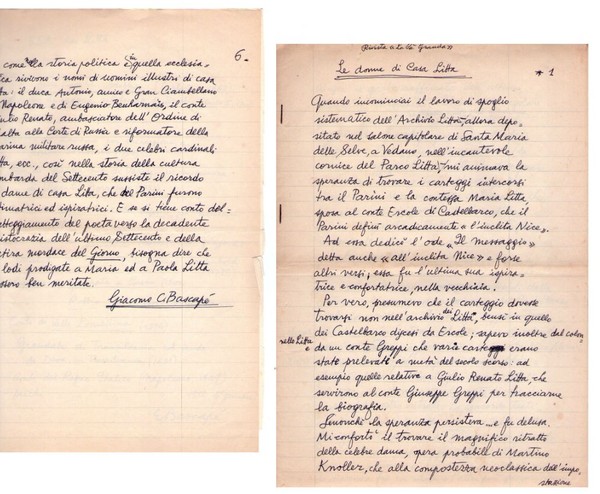 6.
come la storia politica in quella ecclesia=
ca rivivono i nomi di uomini illustri di casa
tta: il duca Antonio, amico e Gran Ciambellano
Napoleone e di Eugenio Beauharnais, il conte
ulio Renato, ambasciatore dell'Ordine di
alta alla Corte di Russia e riformatore della
arina militare russa, i due celebri cardinali
tta, ecc., così nella storia della cultura
mbarda del Settecento sussiste il ricordo
dame di casa Litta, che del Parini furono
timatrici ed ispiratrici. E se si tiene conto del=
tteggiamento del poeta verso la decadente
istocrazia dell'ultimo Settecento e della
tira mordace del Giorno, bisogna dire che
lodi prodigate a Maria ed a Paola Litta
ssero ben meritate.
Giacomo C. Bascapé
Rivista "La Ca' Granda"
Le donne di Casa Litta
* 1
Quando incominciai il lavoro di spoglio
sistematico dell'Archivio Litta, allora depo=
sitato nel salone capitolare di Santa Maria
delle Selve, a Vedano, nell'incantevole
cornice del Parco Litta, mi animava la
speranza di trovare i carteggi intercorsi
tra il Parini e la contessa Maria Litta,
sposa al conte Ercole di Castelbarco, che il
Parini definì arcadicamente «l'inclita Nice».
Ad essa dedicò l'ode «Il messaggio»
detta anche «all'inclita Nice» e forse
altri versi; essa fu l'ultima sua ispira=
trice e confortatrice, nella vecchiaia.
Per vero, presumevo che il carteggio dovesse
trovarsi non nell'archivio dei Litta, bensì in quello
dei Castelbarco discesi da Ercole; sapevo inoltre
da un conte Greppi che vari carteggi erano
stati prelevati a metà del secolo scorso: ad
esempio quelle relative a Giulio Renato Litta, che
servirono al conte Giuseppe Greppi per tracciarne
la biografia.
Sennonché la speranza persisteva... e fu delusa.
Mi confortò il trovare il magnifico ritratto
della celebre dama, opera probabile di Martino
Knoller, che alla compostezza neoclassica dell'impo=
stazione